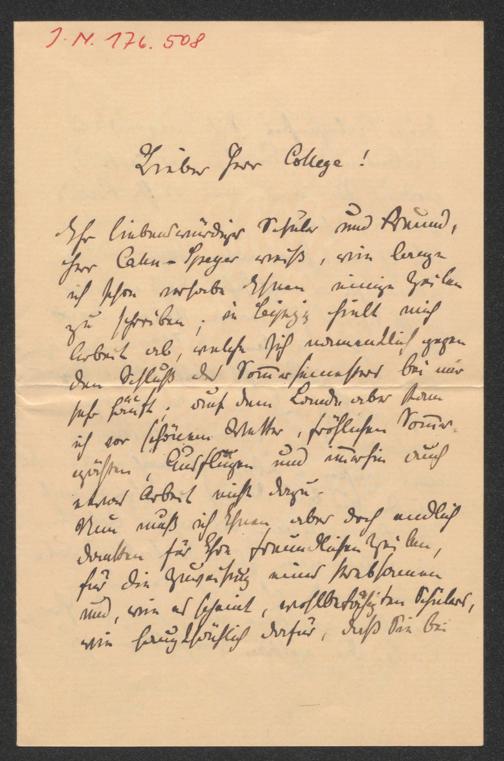 J. N. 176.508
Lieber Herr College!
Ihr liebenswürdiger Schüler und Freund,
Herr Cahn-Speyer weiß, wie lange
ich schon vorhabe Ihnen einige Zeilen
zu schreiben; in Leipzig hielt mich
Arbeit ab, welche sich namentlich gegen
den Schluß des Som̅ersemesters bei mir
sehr häuft; auf dem Lande aber kam
ich vor schönem Wetter, fröhlichen Som̅er-
gästen, Ausflügen und im̅erhin auch
etwas Arbeit nicht dazu.
Nun muß ich Ihnen aber doch endlich
danken für Ihre freundlichen Zeilen,
für die Zuweisung eines strebsamen
und, wie es scheint, wohlbefähigten Schülers,
wie hauptsächlich dafür, daß Sie bei